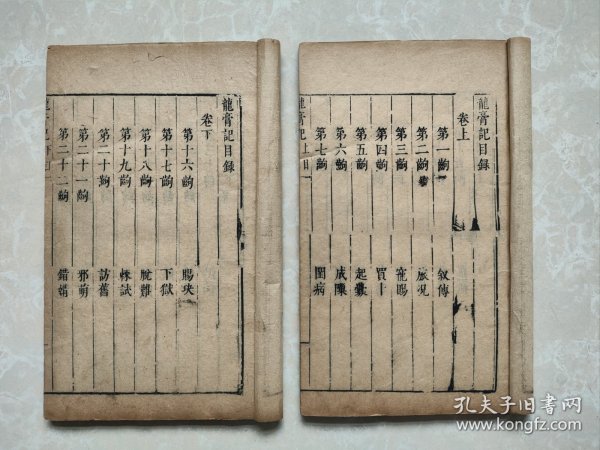 龍膏記目録
卷上
第一齣 叙傳
第二齣 旅况
第三齣 寵賜
第四齣 買卜
第五齣 起釁
第六齣 成隙
第七齣 閨病
龍膏記目録
卷下
第十六齣 賜玦
第十七齣 下獄
第十八齣 脫難
第十九齣 試
第二十齣 訪舊
第二十一齣 邪萌
第二十二齣 錯媾
孔夫子旧书网
www.kongfz.com